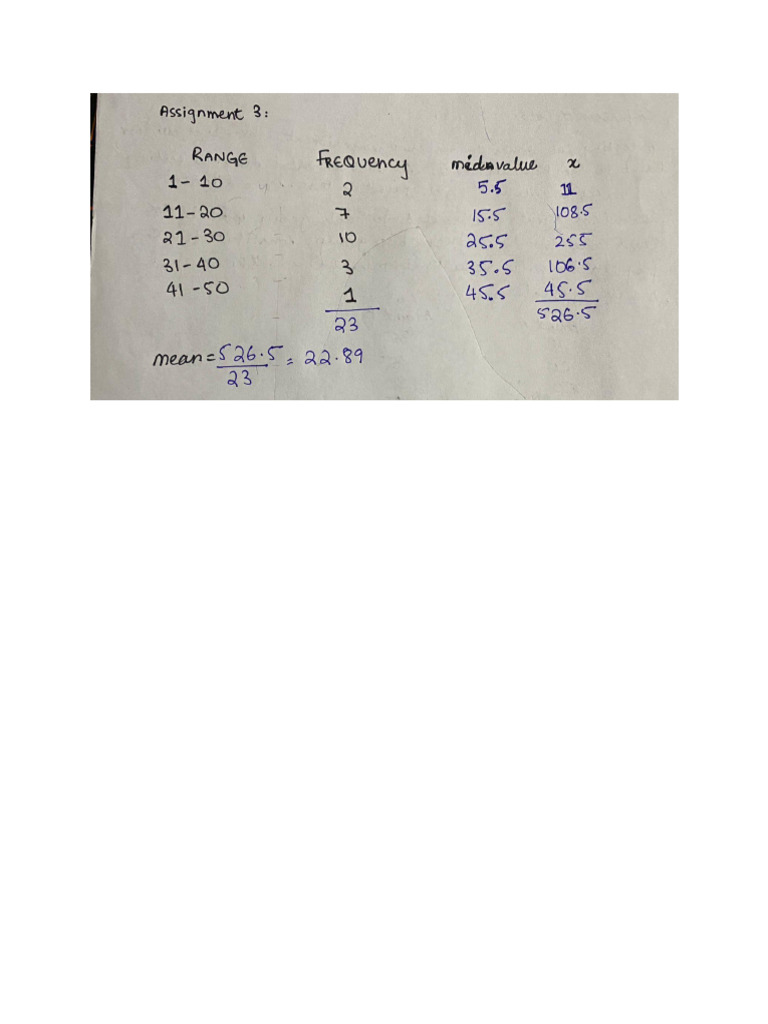 Assignment 3:
RANGE FREQUENCY midnvalue x
1- 10 2 5.5 11
11-20 7 15.5 108.5
21-30 10 25.5 255
31-40 3 35.5 106.5
41-50 1 45.5 45.5
23 526.5
mean = 526.5 = 22.89
23